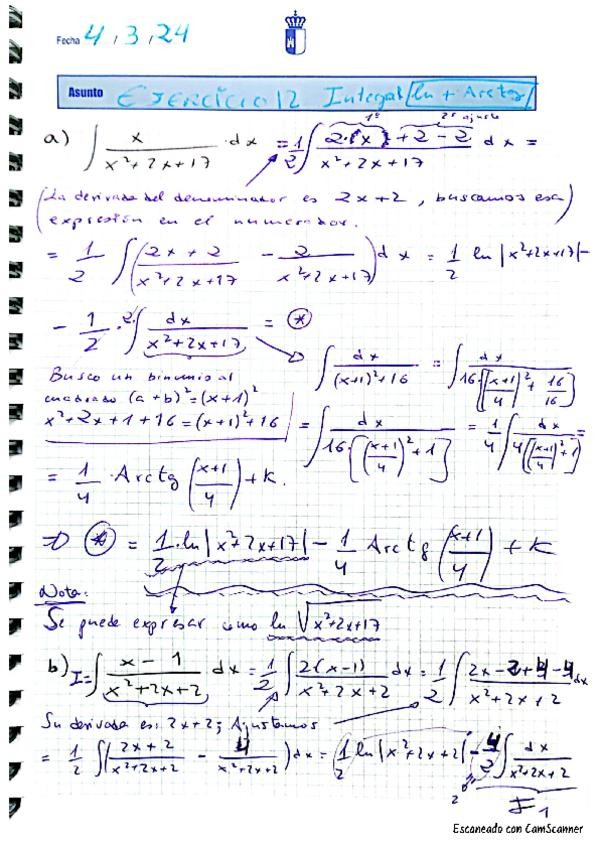 Fecha 4, 3, 24
Asunto Ejercicio 12 Integral (ln + Arctg)
1º 2º ajuste
a) ∫ x/(x²+2x+17) · dx = 1/2 ∫ (2·(x) + 2 - 2)/(x²+2x+17) dx =
(La derivada del denominador es 2x+2, buscamos esa
expresión en el numerador.)
= 1/2 ∫ ((2x+2)/(x²+2x+17) - 2/(x²+2x+17)) dx = 1/2 ln |x²+2x+17| -
- 1/2 · 2 · ∫ dx/(x²+2x+17) = (*)
∫ dx/((x+1)²+16) = ∫ dx/(16·[((x+1)/4)² + 16/16])
Busco un binomio al
cuadrado (a+b)² = (x+1)²
x²+2x+1+16 = (x+1)²+16
= ∫ dx/(16·[((x+1)/4)² + 1]) = 1/4 ∫ dx/(4(((x+1)/4)² + 1)) =
= 1/4 · Arctg ((x+1)/4) + k.
⇒ (*) = 1/2 · ln |x²+2x+17| - 1/4 Arctg ((x+1)/4) + k
Nota:
Se puede expresar como ln √(x²+2x+17)
b) I = ∫ (x-1)/(x²+2x+2) dx = 1/2 ∫ 2(x-1)/(x²+2x+2) dx = 1/2 ∫ (2x-2+4-4)/(x²+2x+2) dx
Su derivada es: 2x+2; Ajustamos
= 1/2 ∫ ((2x+2)/(x²+2x+2) - 4/(x²+2x+2)) dx = 1/2 ln |x²+2x+2| - 4/2 ∫ dx/(x²+2x+2)
2
I1
Escaneado con CamScanner